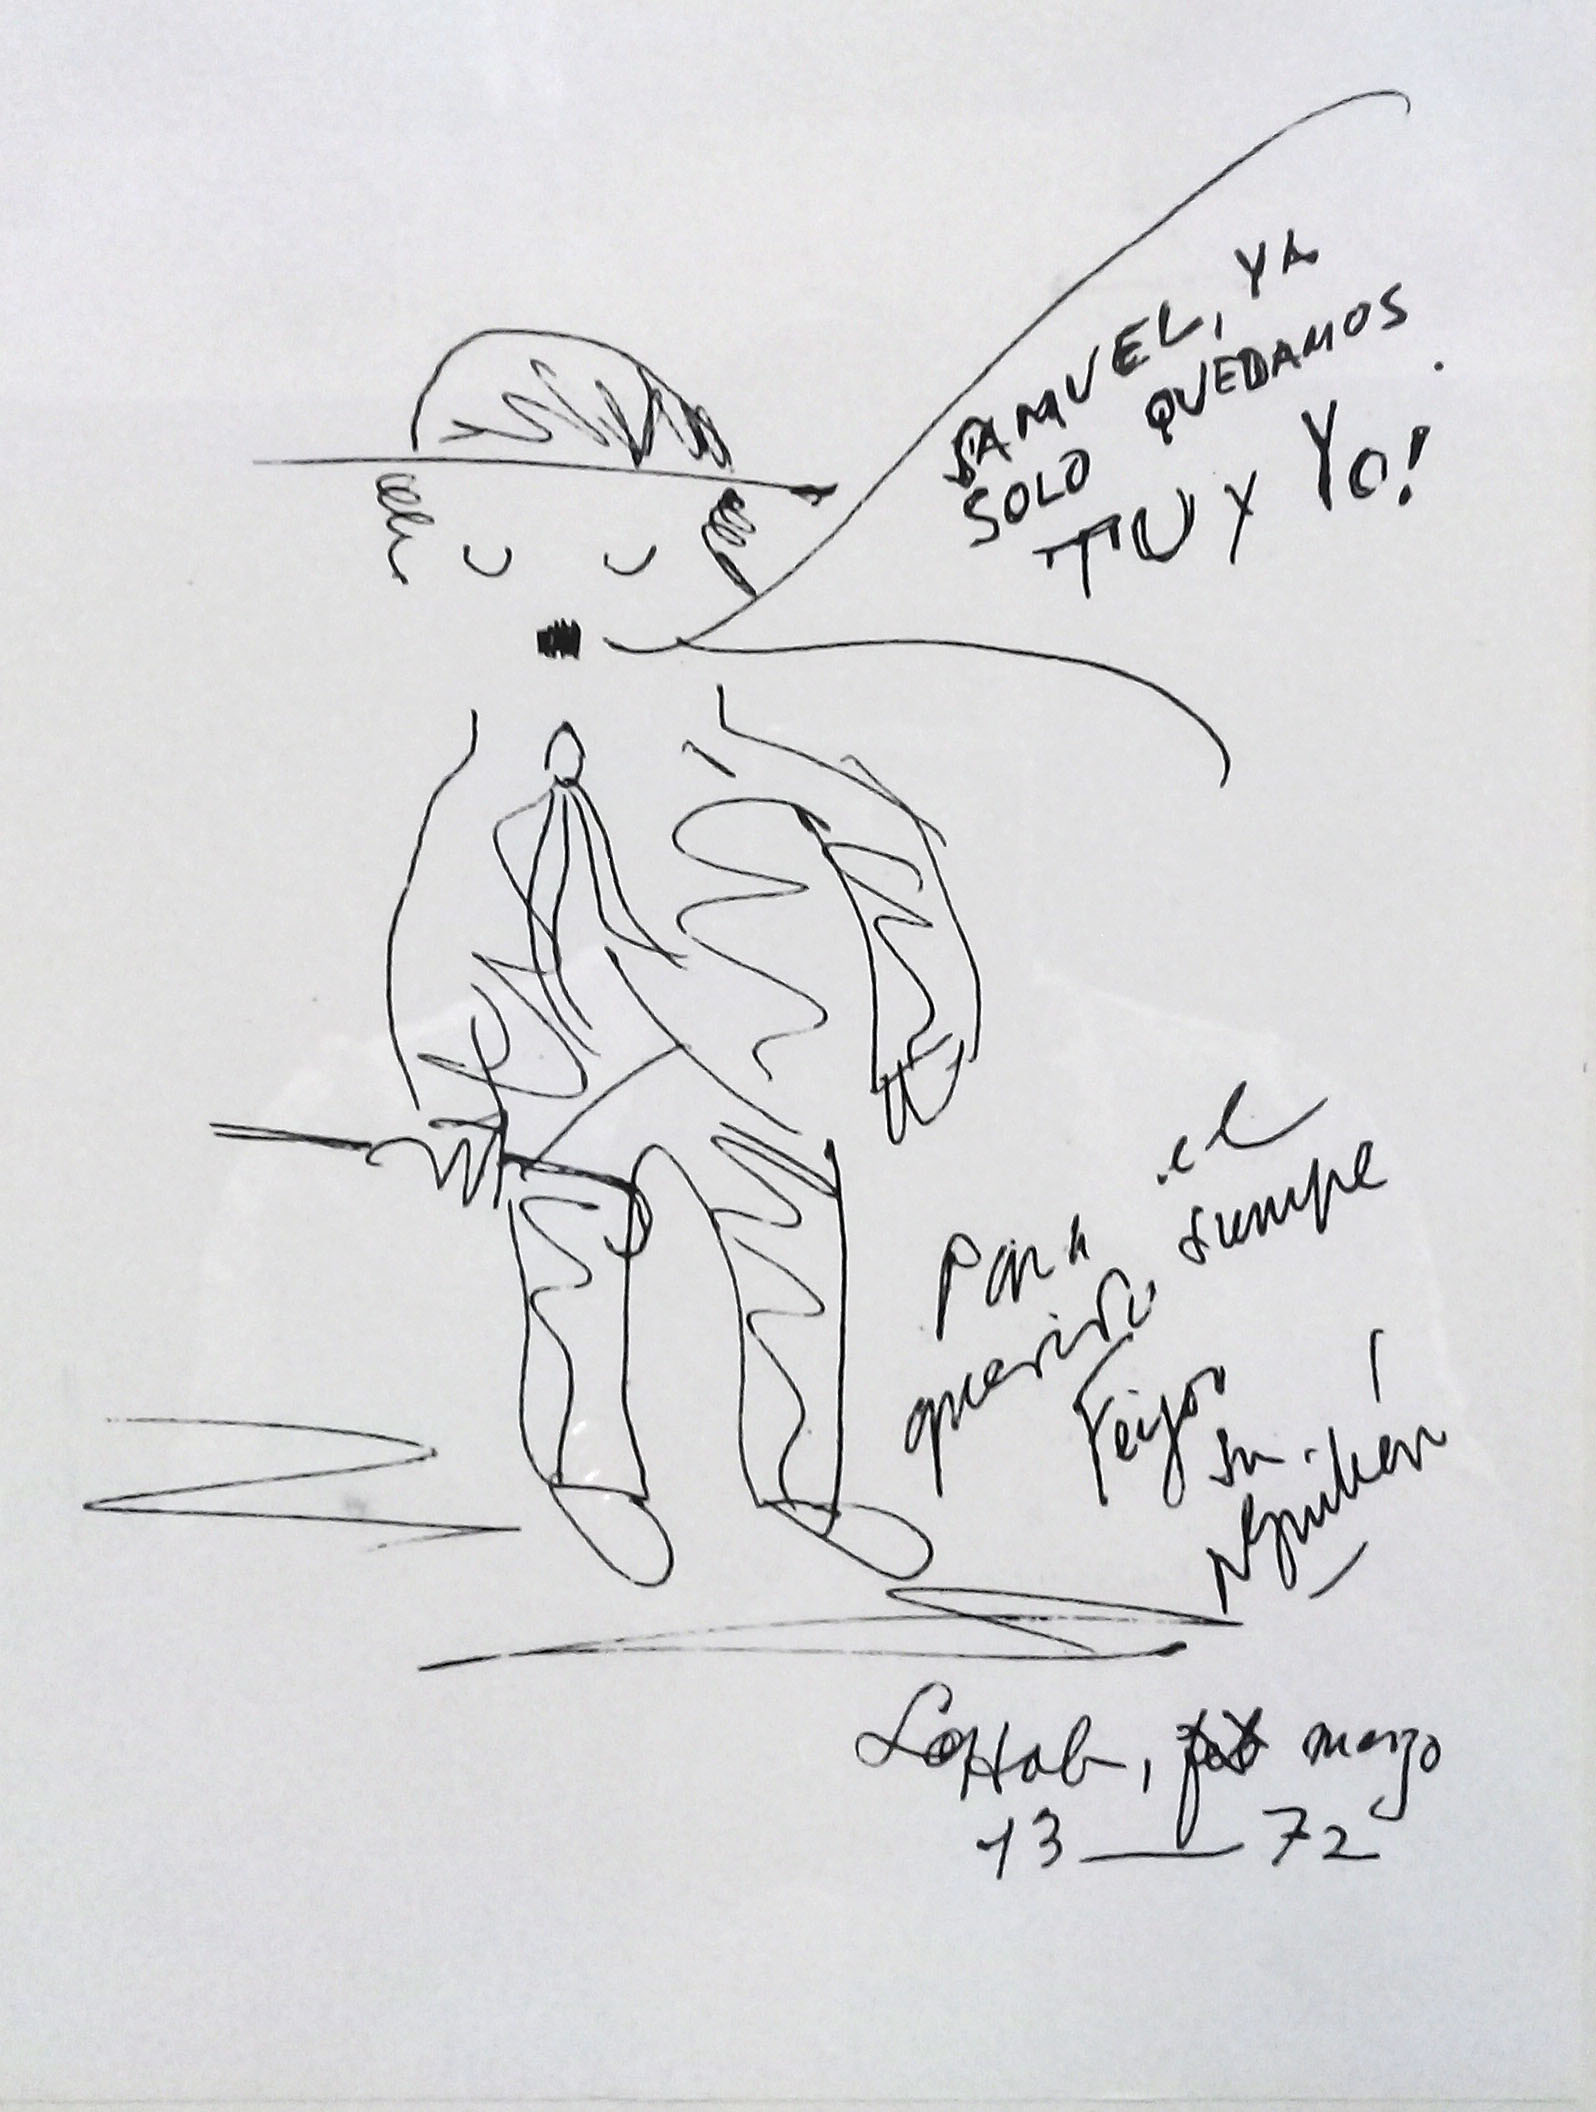 SAMUEL, YA
SOLO QUEDAMOS
TU Y YO!
Para el
querido, siempre
Feijoo
su
La Hab, marzo
13 — 72